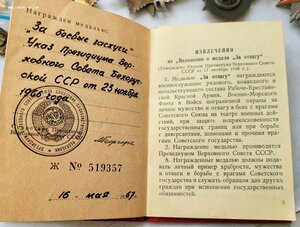 Награжден медалью:
"За боевые заслуги"
Указ Президиума Вер-
ховного Совета Белорус-
ской ССР от 23 ноября
1966 года
Ж № 519357
16 мая 67
ИЗВЛЕЧЕНИЯ
из „Положения о медали „За отвагу“
(Утверждено Указом Президиума Верховного Совета
СССР от 17 октября 1938 г.)
1. Медалью „За отвагу“ награждаются
военнослужащие рядового, командного и
начальствующего состава Рабоче-Крестьян-
ской Красной Армии, Военно-Морского
Флота и Войск пограничной охраны за
личное мужество и отвагу в боях с врагами
Советского Союза на театре военных дей-
ствий, при защите неприкосновенности
государственных границ или при борьбе
с диверсантами, шпионами и прочими врагами
Советского государства.
2. Награждение медалью производится
Президиумом Верховного Совета СССР.
8. Награжденные медалью должны подавать
личный пример храбрости, мужества
и отваги в борьбе с врагами Советского
государства и служить образцом для других
граждан при исполнении государственных
обязанностей.
5